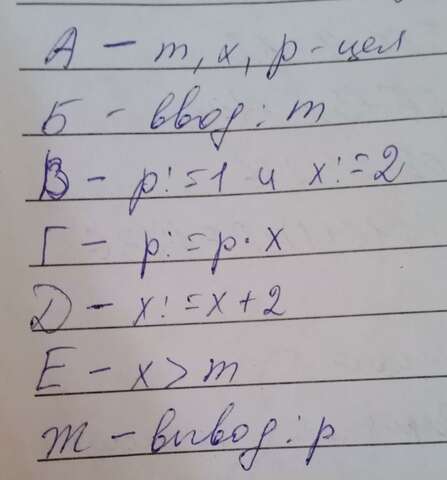 А – m, x, p - цел
Б – ввод: m
В – p:=1 и x:=2
Г – p:=p·x
Д – x:=x+2
Е – x>m
Ж – вывод: p